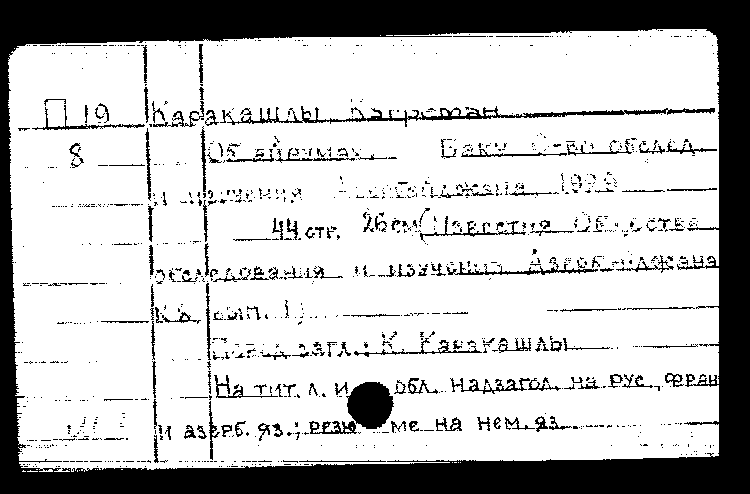 П 19 Каракашлы,
8 Об айрумах. Баку О-во обслед.
и изучения Азербайджана, 1929
44 стр. 26 см (Известия Общества
обследования и изучения Азербайджана
№ 8, вып. 1)
Перед загл.: К. Каракашлы
На тит. л. и обл. надзагол. на рус., фран
и азерб. яз.; резюме на нем. яз.